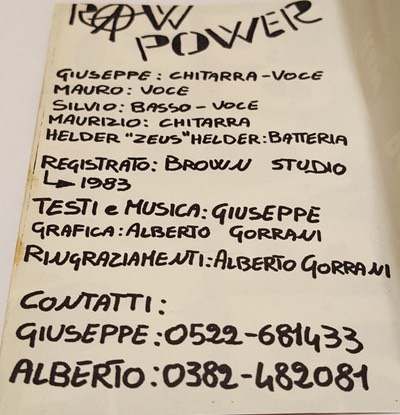 RAW
POWER
GIUSEPPE: CHITARRA-VOCE
MAURO: VOCE
SILVIO: BASSO-VOCE
MAURIZIO: CHITARRA
HELDER "ZEUS" HELDER: BATTERIA
REGISTRATO: BROWN STUDIO
↳ 1983
TESTI e MUSICA: GIUSEPPE
GRAFICA: ALBERTO GORRANI
RINGRAZIAMENTI: ALBERTO GORRANI
CONTATTI:
GIUSEPPE: 0522-681433
ALBERTO: 0382-482081